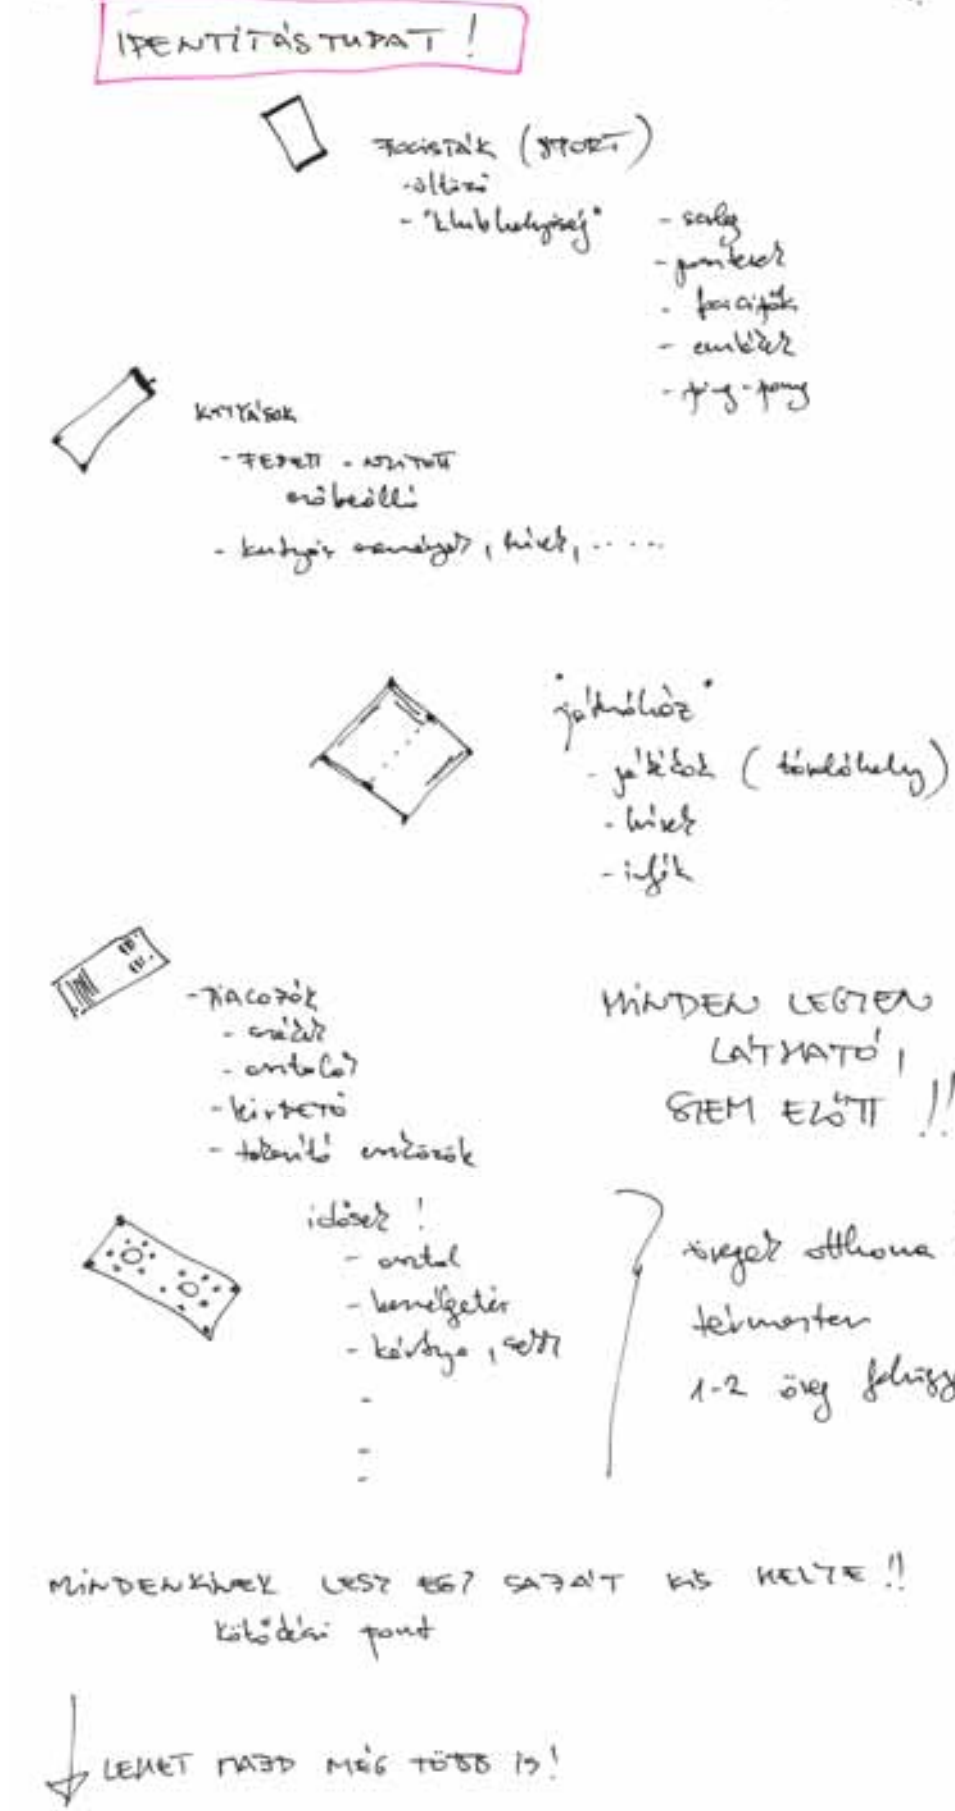 IDENTITÁSTUDAT!
FOCISTÁK (SPORT)
- öltöző
- "klubhelyiség"
- serleg
- focicipők
- emlékek
- ping-pong
KUTYÁSOK
- FEDETT - NYITOTT
esőbeálló
- kutyás események, hírek, .....
"játszóház"
- játékok (tárolóhely)
- hírek
- infók
- PIACOZÓK
- székek
- asztalok
- hirdető
- takarító eszközök
MINDEN LEGYEN
LÁTHATÓ,
SZEM ELŐTT!!
idősek!
- asztal
- beszélgetés
- kártya, sakk
-
-
-
öregek otthona
térmester
1-2 öreg felügy
MINDENKINEK LESZ EGY SAJÁT KIS HELYE!!
kötődési pont
LEHET MAJD MÉG TÖBB IS!